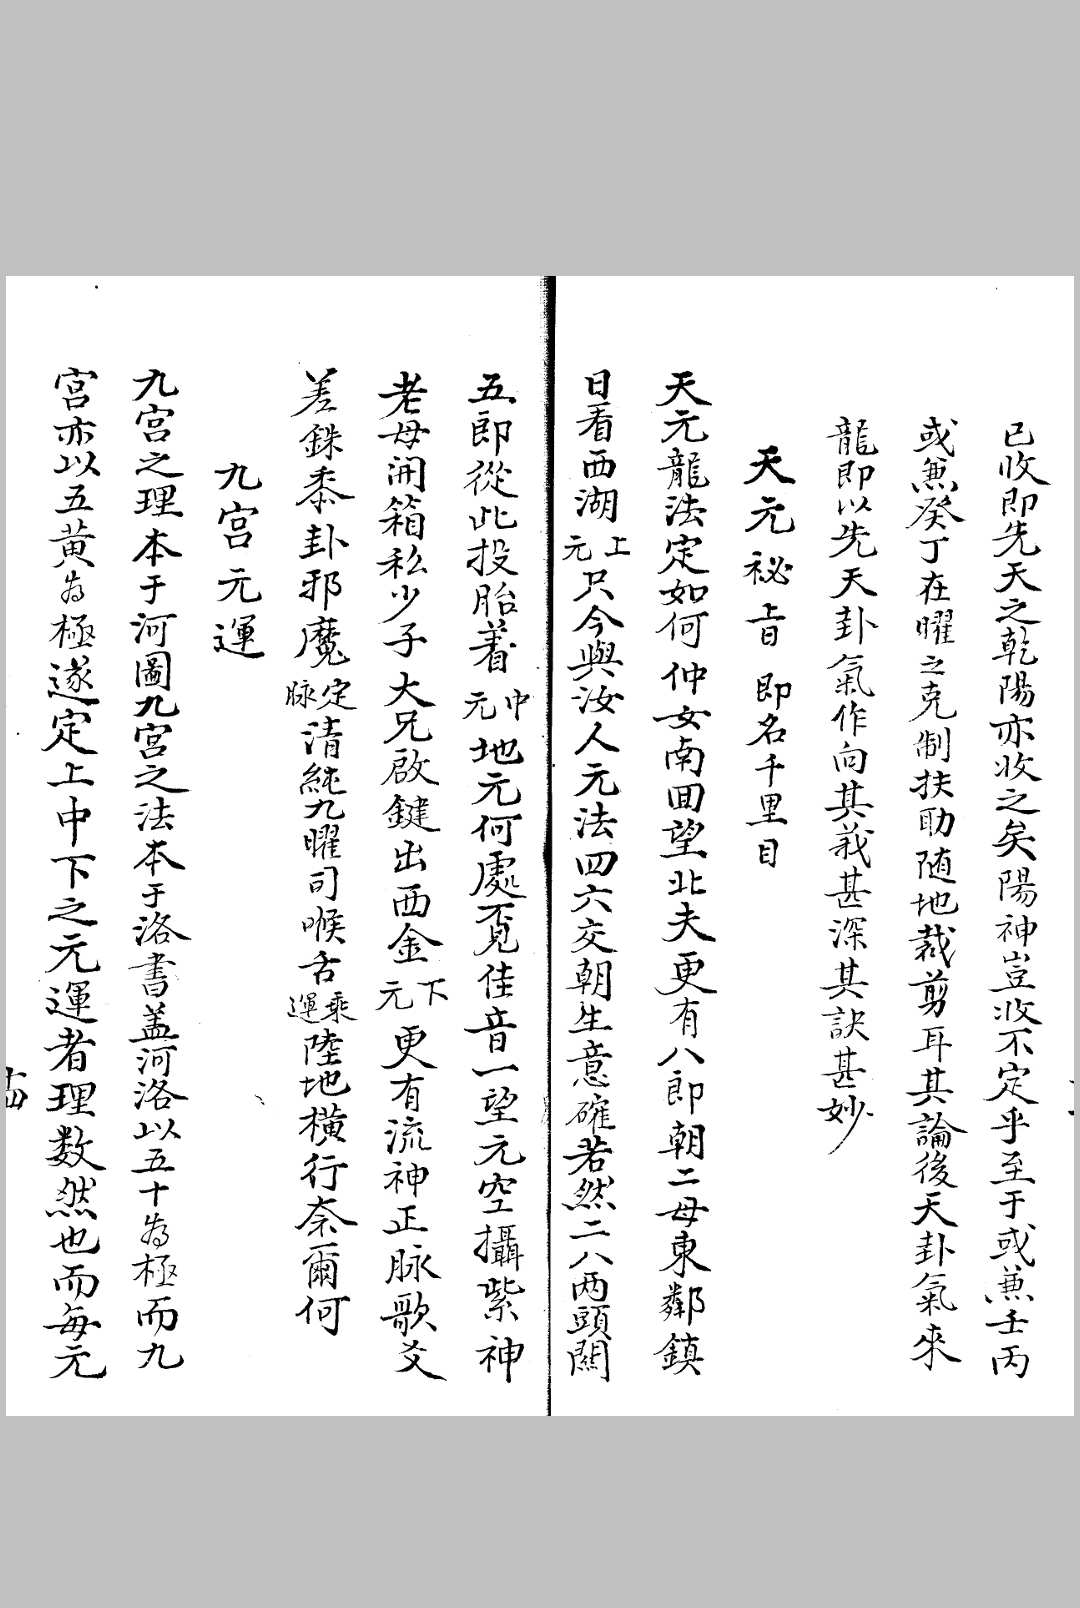 已收即先天之乾陽亦收之矣陽神豈收不定乎至于或兼壬丙
或兼癸丁在曜之克制扶助随地裁剪耳其論後天卦氣來
龍即以先天卦氣作向其義甚深其訣甚妙
天元祕旨 即名千里目
天元龍法定如何仲女南回望北夫更有八郎朝二母東鄰鎮
日看西湖上元只今與汝人元法四六交朝生意確若然二八两頭関
五郎從此投胎着中元地元何處覔佳音一望元空攝紫神
老母開箱私少子大兄啟鍵出西金下元更有流神正脉歌爻
差銖黍卦邪魔定脉清純九曜司喉舌乘運陸地橫行奈爾何
九宮元運
九宮之理本于河圖九宮之法本于洛書盖河洛以五十為極而九
宮亦以五黃為極遂定上中下之元運者理数然也而每元
十四